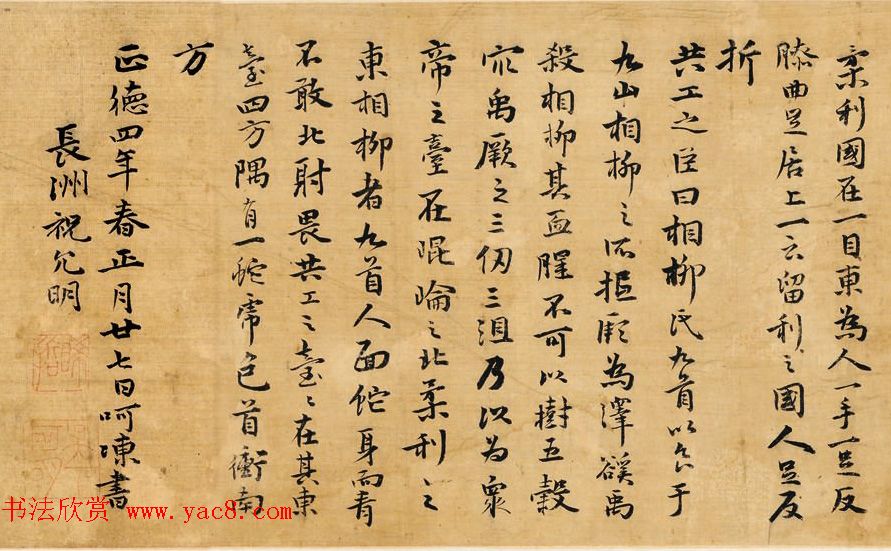 柔利國在一目東為人一手一足反
膝曲足居上一云留利之國人足反
折
共工之臣曰相柳氏九首以食于
九山相柳之所抵厥為澤谿禹
殺相柳其血腥不可以樹五穀
種禹厥之三仞三沮乃以為衆
帝之臺在崐崘之北柔利之
東相柳者九首人面蛇身而青
不敢北射畏共工之臺臺在其東
臺四方隅有一蛇虎色首衝南
方
正德四年春正月廿七日呵凍書
長洲祝允明
书法欣赏 www.yac8.com